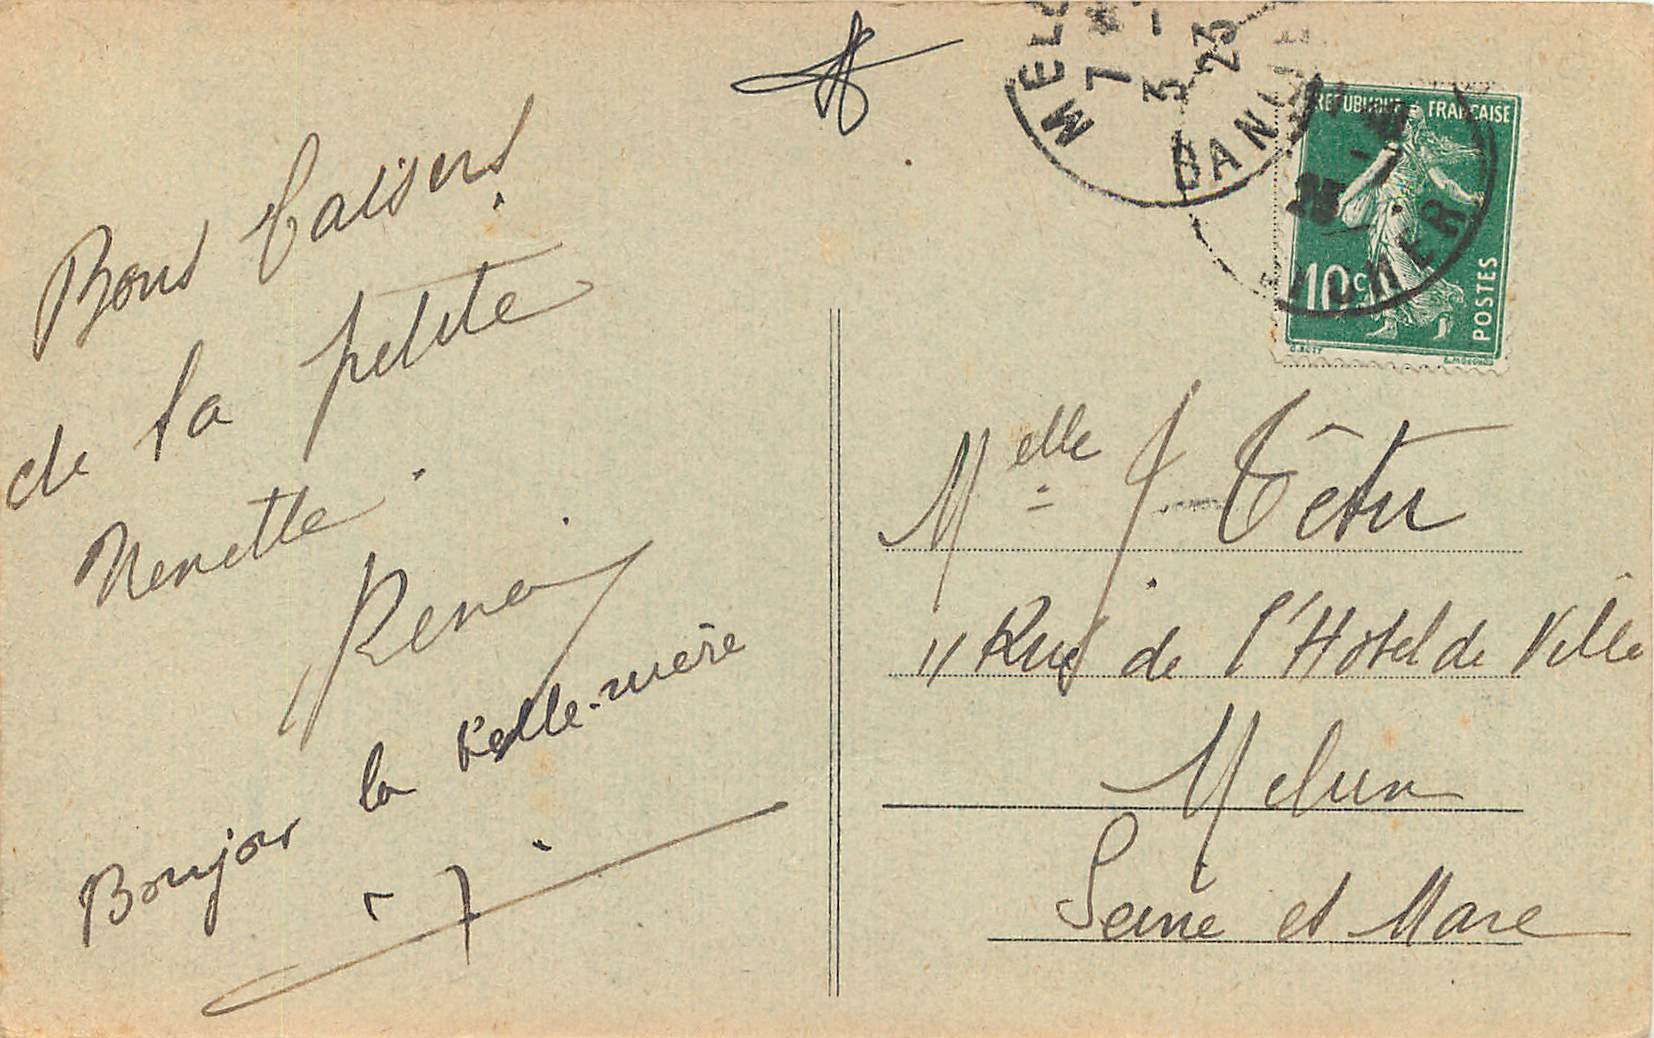 Bons baisers
de la petite
Nenette.
Bonjour la belle-mère
RÉPUBLIQUE FRANÇAISE
10 c
POSTES
7
3 - 23
25
Melle J. Têtu
11 Rue de l'Hôtel de Ville
Melun
Seine et Mare